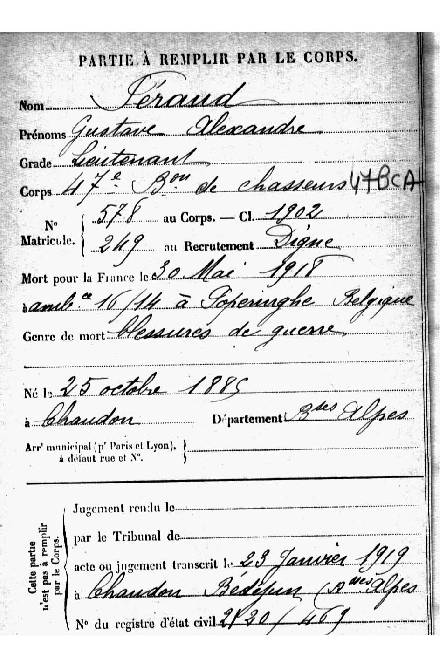 PARTIE À REMPLIR PAR LE CORPS.
Nom Féraud
Prénoms Gustave Alexandre
Grade Lieutenant
Corps 47e Bon de chasseurs 47BCA
N° Matricule. { 578 au Corps. — Cl. 1902
249 au Recrutement Digne
Mort pour la France le 30 Mai 1918
à ambce 16/14 à Poperinghe Belgique
Genre de mort blessures de guerre
Né le 25 octobre 1885
à Chaudon Département Bses Alpes
Arrt municipal (pr Paris et Lyon), à défaut rue et N°. }
Cette partie n'est pas à remplir par le Corps.
Jugement rendu le
par le Tribunal de
acte ou jugement transcrit le 23 Janvier 1919
à Chaudon Alpes
N° du registre d'état civil